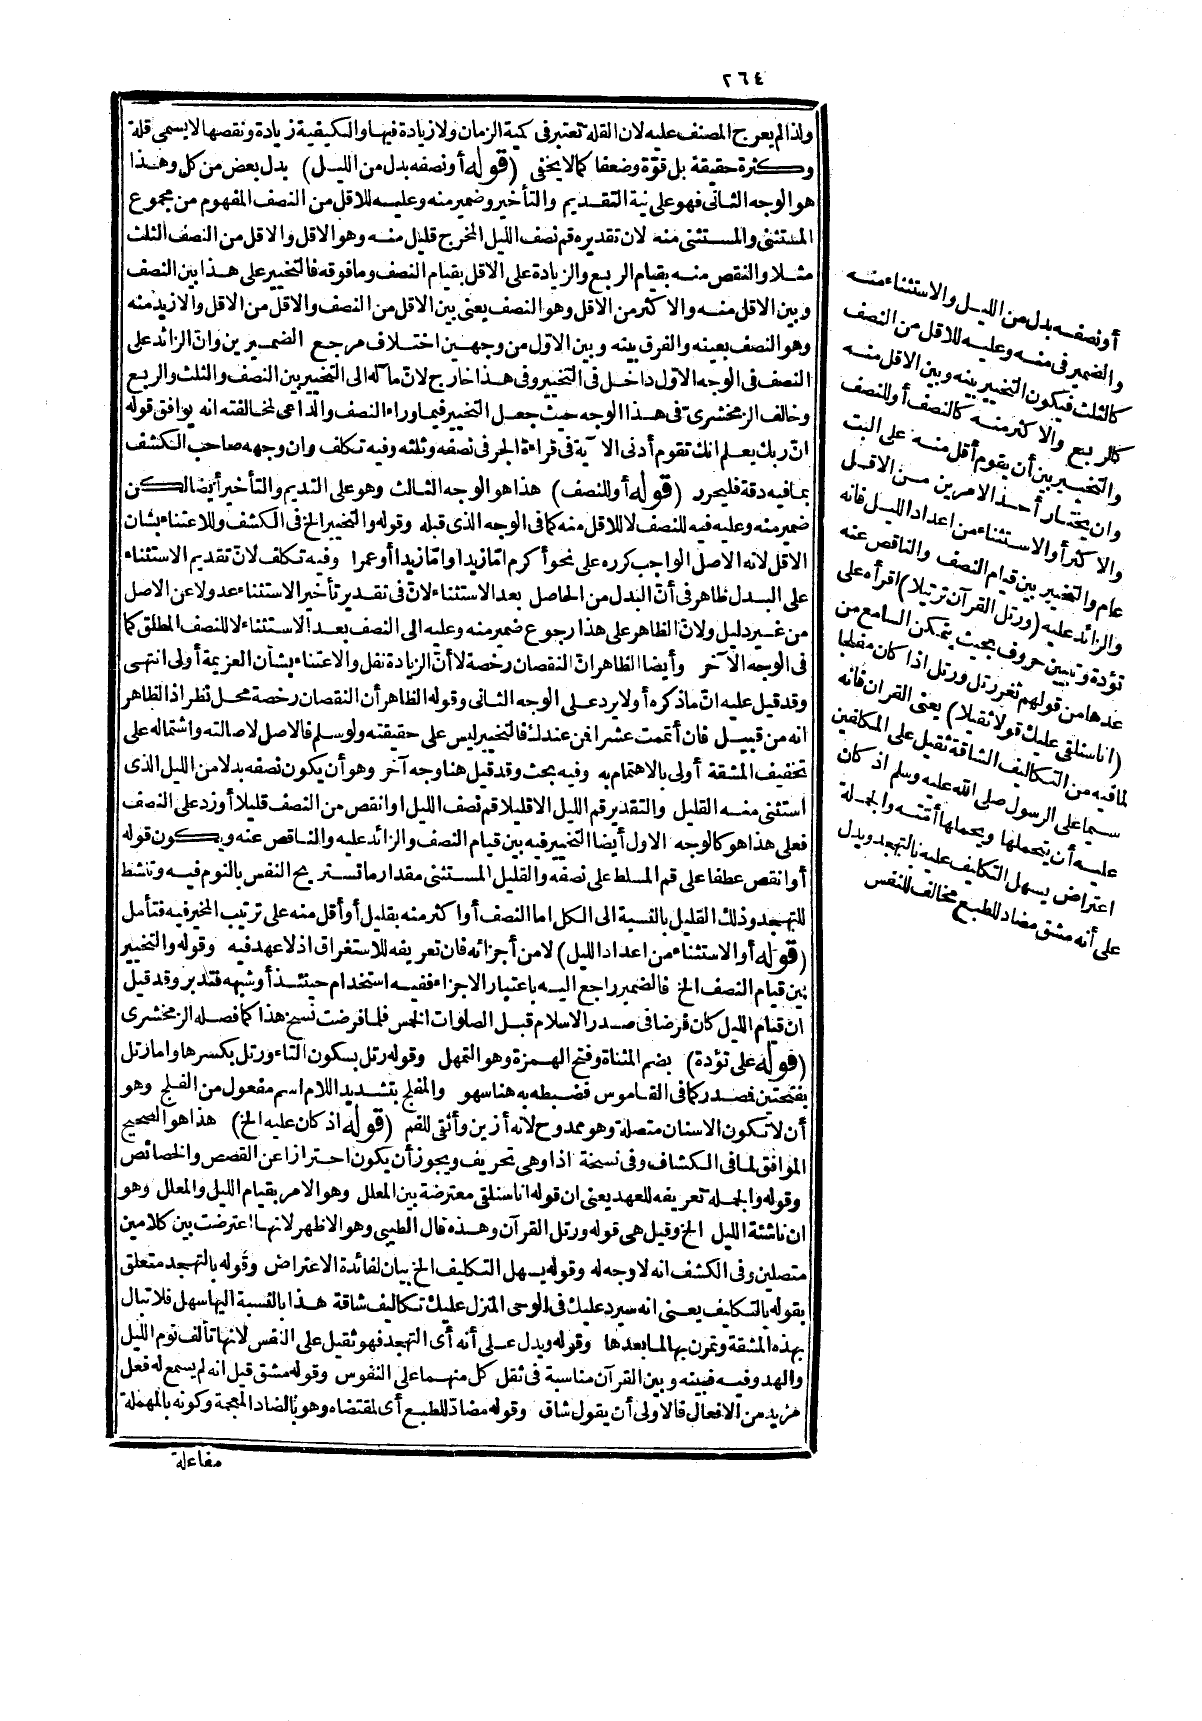 ٢٦٤
ولذا لم يعرج المصنف عليه لان القلة تعتبر في كمية الزمان ولا زيادة فيها والكيفية زيادة ونقصها لا يسمى قلة
وكثرة حقيقة بل قوّة وضعفا كما لا يخفى (قوله أو نصفه بدل من الليل) بدل بعض من كل وهذا
هو الوجه الثاني فهو على نية التقديم والتأخير وضمير منه وعليه للاقل من النصف المفهوم من مجموع
المستثنى والمستثنى منه لان تقديره قم نصف الليل المخرج قليل منه وهو الاقل والاقل من النصف الثلث
مثلا والنقص منه بقيام الربع والزيادة على الاقل بقيام النصف وما فوقه فالتخيير على هذا بين النصف
وبين الاقل منه والاكثر من الاقل وهو النصف يعنى بين الاقل من النصف والاقل من الاقل والازيد منه
وهو النصف بعينه والفرق بينه وبين الاوّل من وجهين اختلاف مرجع الضميرين وانّ الزائد على
النصف في الوجه الاوّل داخل في التخيير وفي هذا خارج لانّ مآله الى التخيير بين النصف والثلث والربع
وخالف الزمخشرى في هذا الوجه حيث جعل التخيير فيما وراء النصف والداعى لمخالفته انه يوافق قوله
انّ ربك يعلم انك تقوم أدنى الآية في قراءة الجر في نصفه وثلثه وفيه تكلف وان وجهه صاحب الكشف
بما فيه دقة فليحرر (قوله أو للنصف) هذا هو الوجه الثالث وهو على التقديم والتأخير أيضا لكن
ضمير منه وعليه فيه للنصف لا للاقل منه كما في الوجه الذى قبله وقوله والتخيير الخ في الكشف وللاعتناء بشان
الاقل لانه الاصل الواجب كرره على نحو أكرم امّا زيدا وامّا زيدا أو عمرا وفيه تكلف لانّ تقديم الاستثناء
على البدل ظاهر في أنّ البدل من الحاصل بعد الاستثناء لانّ في تقدير تأخير الاستثناء عدولا عن الاصل
من غير دليل ولانّ الظاهر على هذا رجوع ضمير منه وعليه الى النصف بعد الاستثناء لا للنصف المطلق كما
في الوجه الآخر وأيضا الظاهر انّ النقصان رخصة لا أنّ الزيادة نفل والاعتناء بشأن العزيمة أولى انتهى
وقد قيل عليه انّ ما ذكره أولا يرد على الوجه الثانى وقوله الظاهر أن النقصان رخصة محل نظر اذ الظاهر
انه من قبيل فان أتممت عشرا فمن عندك فالتخيير ليس على حقيقته ولو سلم فالاصل لاصالته واشتماله على
تخفيف المشقة أولى بالاهتمام به وفيه بحث وقد قيل هنا وجه آخر وهو أن يكون نصفه بدلا من الليل الذى
استثنى منه القليل والتقدير قم الليل الاقليلا قم نصف الليل او انقص من النصف قليلا أو زد على النصف
فعلى هذا هو كالوجه الاول أيضا التخيير فيه بين قيام النصف والزائد عليه والناقص عنه ويكون قوله
أو انقص عطفا على قم المسلط على نصفه والقليل المستثنى مقدار ما تستريح النفس بالنوم فيه وتنشط
للتهجد وذلك القليل بالنسبة الى الكل اما النصف أو اكثر منه بقليل أو أقل منه على ترتيب المخير فيه فتأمل
(قوله أو الاستثناء من اعداد الليل) لا من أجزائه فان تعريفه للاستغراق اذ لا عهد فيه وقوله والتخيير
بين قيام النصف الخ فالضمير راجع اليه باعتبار الاجزاء ففيه استخدام حينئذ أو شبهه فتدبر وقد قيل
ان قيام الليل كان فرضا في صدر الاسلام قبل الصلوات الخمس فلما فرضت نسخ هذا كما فصله الزمخشرى
(قوله على تؤدة) بضم المثناة وفتح الهمزة وهو التمهل وقوله رتل بسكون التاء ورتل بكسرها واما رتل
بفتحتين فمصدر كما في القاموس فضبطه به هنا سهو والمفلج بتشديد اللام اسم مفعول من الفلج وهو
أن لا تكون الاسنان متصلة وهو ممدوح لانه أزين وأنقى للفم (قوله اذ كان عليه الخ) هذا هو الصحيح
الموافق لما في الكشاف وفي نسخة اذا وهى تحريف ويجوز أن يكون احترازا عن القصص والخصائص
وقوله والجملة تعريفه للعهد يعنى ان قوله انا سنلقى معترضة بين المعلل وهو الامر بقيام الليل والمعلل وهو
ان ناشئة الليل الخ وقيل هى قوله ورتل القرآن وهذه قال الطيبى وهو الاظهر لانها اعترضت بين كلامين
متصلين وفى الكشف انه لا وجه له وقوله يسهل التكليف الخ بيان لفائدة الاعتراض وقوله بالتهجد متعلق
بقوله بالتكليف يعنى انه سيرد عليك فى الوحى المنزل عليك تكاليف شاقة هذا بالنسبة اليها سهل فلا تبال
بهذه المشقة وتمرن بها لما بعدها وقوله ويدل على أنه أى التهجد فهو ثقيل على النفس لانها تألف نوم الليل
والهدو فيه فبينه وبين القرآن مناسبة في ثقل كل منهما على النفوس وقوله مشق قيل انه لم يسمع له فعل
مزيد من الافعال فالاولى أن يقول شاق وقوله مضادّ للطبع أى لمقتضاه وهو بالضاد المعجمة وكونه بالمهملة
مفاعلة
أو نصفه بدل من الليل والاستثناء منه
والضمير فى منه وعليه للاقل من النصف
كالثلث فيكون التخيير بينه وبين الاقل منه
كالربع والاكثر منه كالنصف أو للنصف
والتخيير بين أن يقوم أقل منه على البت
وان يختار أحد الامرين من الاقل
والاكثر أو الاستثناء من اعداد الليل فانه
عام والتخيير بين قيام النصف والناقص عنه
والزائد عليه (ورتل القرآن ترتيلا) اقرأه على
تؤدة وتبيين حروف بحيث يتمكن السامع من
عدها من قولهم ثغر رتل ورتل اذا كان مفلجا
(انا سنلقى عليك قولا ثقيلا) يعنى القرآن فانه
لما فيه من التكاليف الشاقة ثقيل على المكلفين
سيما على الرسول صلى الله عليه وسلم اذ كان
عليه أن يتحملها ويحملها أمّته والجملة
اعتراض يسهل التكليف عليه بالتهجد ويدل
على أنه مشق مضاد للطبع مخالف للنفس